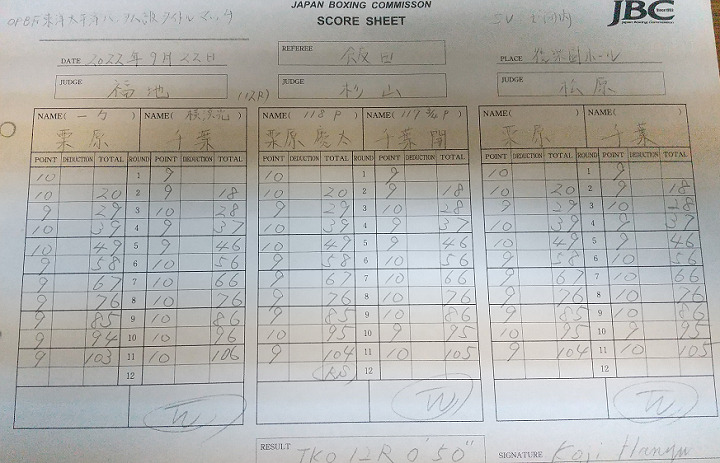 JAPAN BOXING COMMISSON
SCORE SHEET
JBC
Japan Boxing Commission
OPBF東洋太平洋バンタム級タイトルマッチ
DATE 2022年9月22日
REFEREE 飯田
PLACE 後楽園ホール
JUDGE 福地 (12R)
JUDGE 杉山
JUDGE 松原
NAME( 一力 ) NAME( 横浜光 ) NAME( 118 P ) NAME( 117 3/4 P ) NAME( ) NAME( )
栗原 千葉 栗原慶太 千葉開 栗原 千葉
POINT DEDUCTION TOTAL ROUND POINT DEDUCTION TOTAL POINT DEDUCTION TOTAL ROUND POINT DEDUCTION TOTAL POINT DEDUCTION TOTAL ROUND POINT DEDUCTION TOTAL
10 1 9 10 1 9 10 1 9
10 20 2 9 18 10 20 2 9 18 10 20 2 9 18
9 29 3 10 28 9 29 3 10 28 9 29 3 10 28
10 39 4 9 37 10 39 4 9 37 10 39 4 9 37
10 49 5 9 46 10 49 5 9 46 10 49 5 9 46
9 58 6 10 56 9 58 6 10 56 9 58 6 10 56
9 67 7 10 66 9 67 7 10 66 9 67 7 10 66
9 76 8 10 76 9 76 8 10 76 9 76 8 10 76
9 85 9 10 86 9 85 9 10 86 9 85 9 10 86
9 94 10 10 96 10 95 10 9 95 10 95 10 9 95
9 103 11 10 106 9 104 11 10 105 9 104 11 10 105
12 12 12
W. W. W.
RESULT TKO 12R 0'50"
SIGNATURE Koji Hanyu